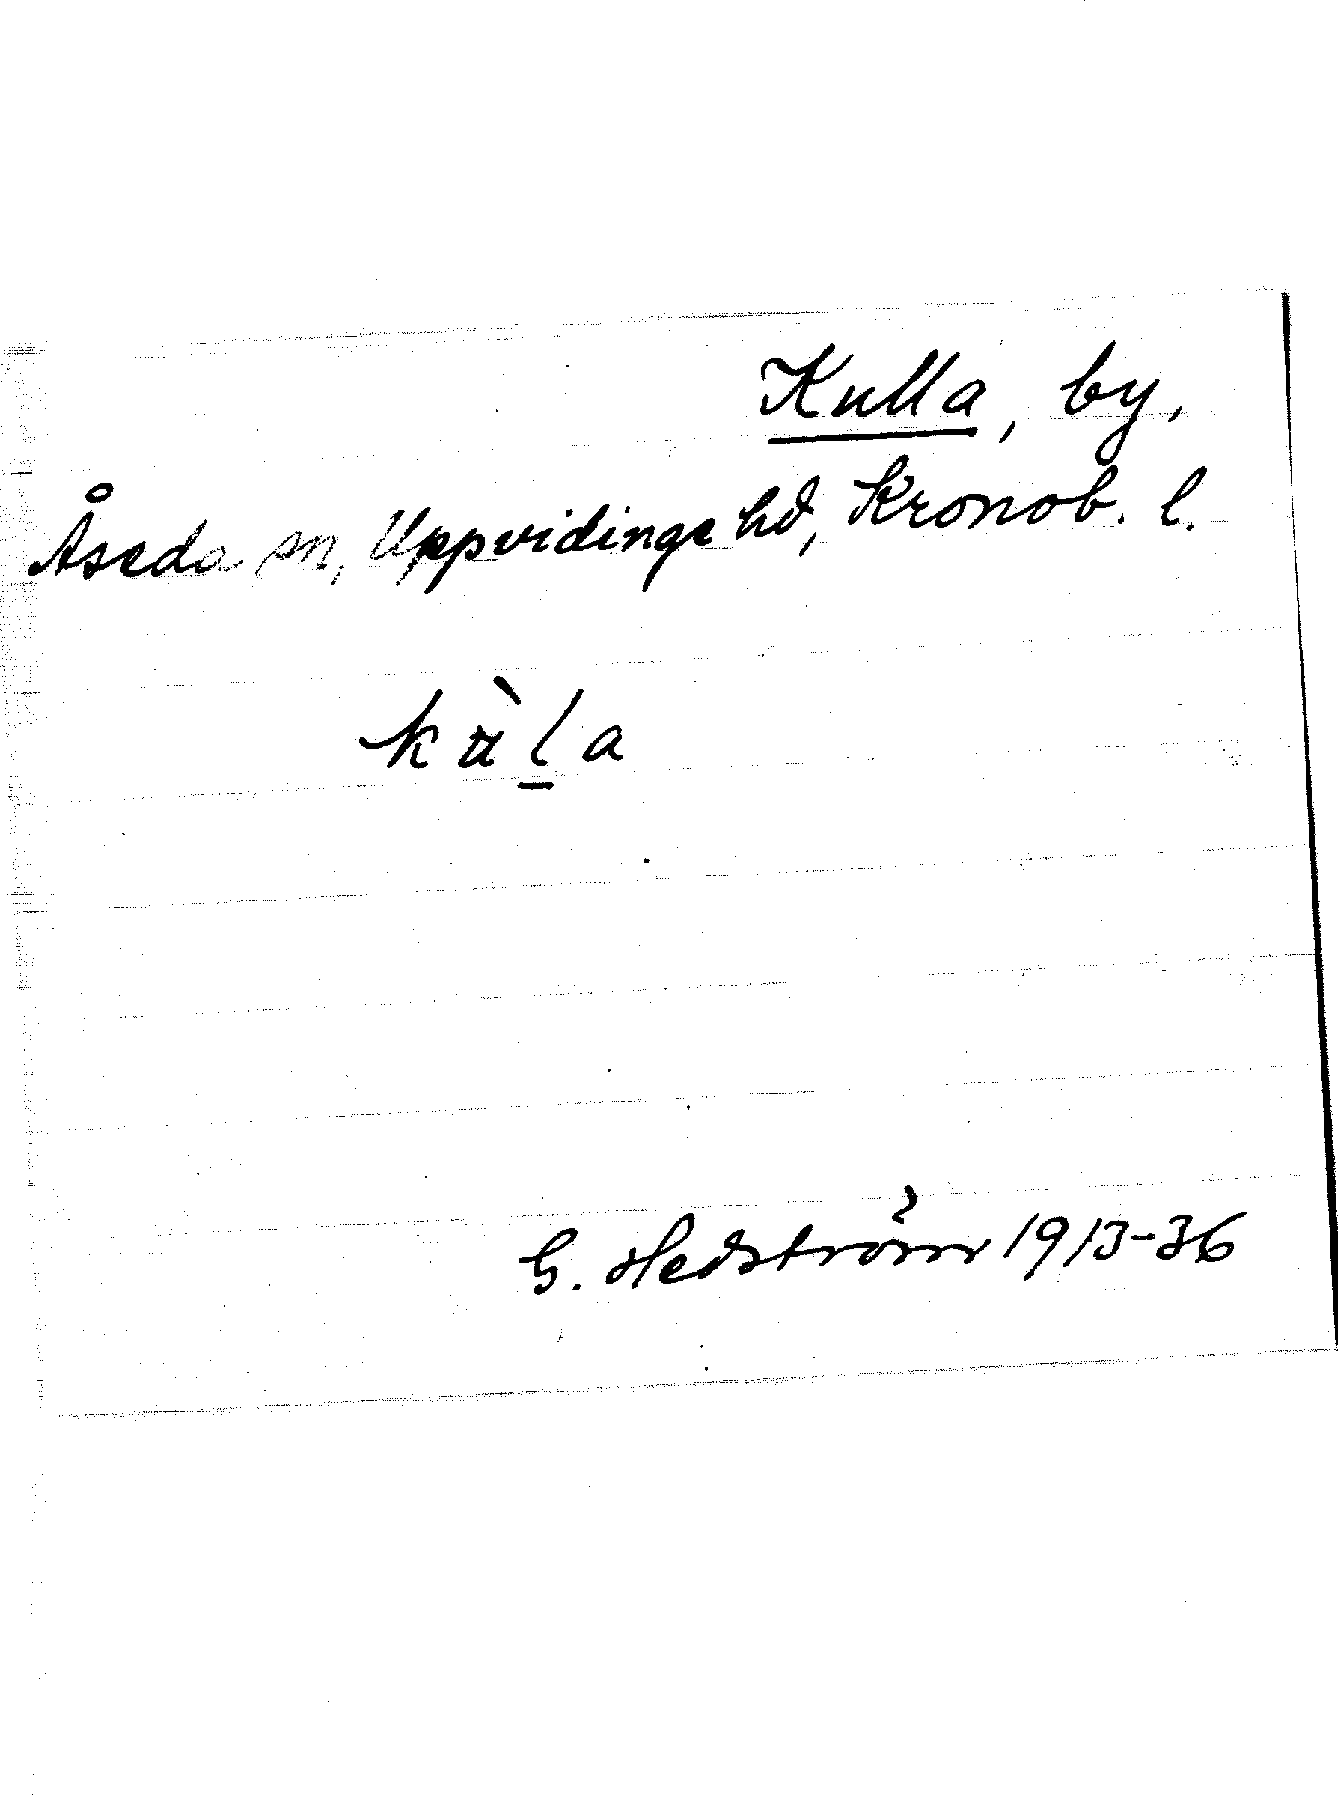 Kulla, by,
Åseda sn, Uppvidinge hd, Kronob. l.
kù̠la
G. Hedström 1913-36